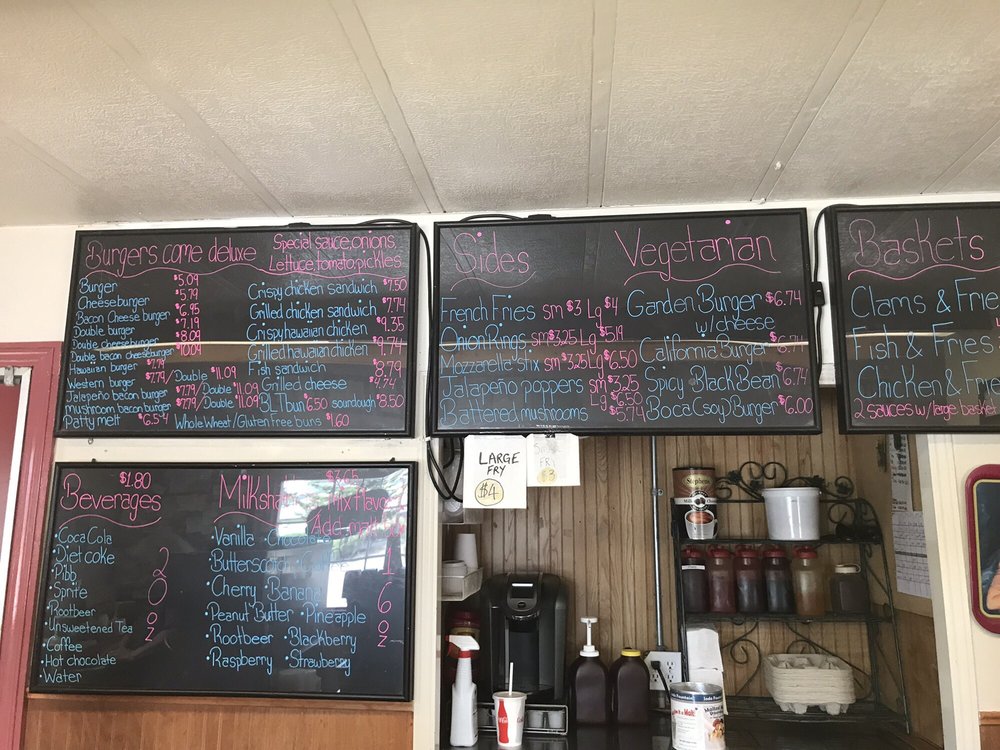 Burgers come deluxe
Special sauce, onions,
Lettuce, tomato, pickles
Burger $5.09
Cheeseburger $5.79
Bacon Cheese burger $6.95
Double burger $7.19
Double cheeseburger $8.09
Double bacon cheeseburger $10.04
Hawaiian burger $7.79
Western burger $7.79/Double $11.09
Jalapeño bacon burger $7.79/Double $11.09
Mushroom bacon burger $7.79/Double $11.09
Patty melt $6.54
Crispy chicken sandwich $7.50
Grilled chicken sandwich $7.74
Crispy hawaiian chicken $9.35
Grilled hawaiian chicken $9.74
Fish sandwich $8.79
Grilled cheese $4.74
BLT bun $6.50 sourdough $8.50
Whole Wheat/Gluten free buns $1.60
Sides
French Fries sm $3 Lg $4
Onion Rings sm $3.25 Lg $5.19
Mozzarella stix sm $3.25 Lg $6.50
Jalapeño poppers sm $3.25
Lg $6.50
Battered mushrooms $5.74
Vegetarian
Garden Burger $6.74
w/cheese
California Burger $6.74
Spicy Black Bean $6.74
Boca (soy) Burger $6.00
Baskets
Clams &
Fish & Fries
Chicken &
2 sauces w/large
$1.80
Beverages
Coca Cola
Diet coke
Pibb
Sprite
Rootbeer
Unsweetened Tea
Coffee
Hot chocolate
Water
20 oz
$3.65
Mix flavors
Add malt
Vanilla
Butterscotch
Cherry · Banana
Peanut Butter · Pineapple
Rootbeer · Blackberry
Raspberry · Strawberry
16 oz
LARGE
FRY
$4
FRY
$3
Stephen's
Coca-Cola